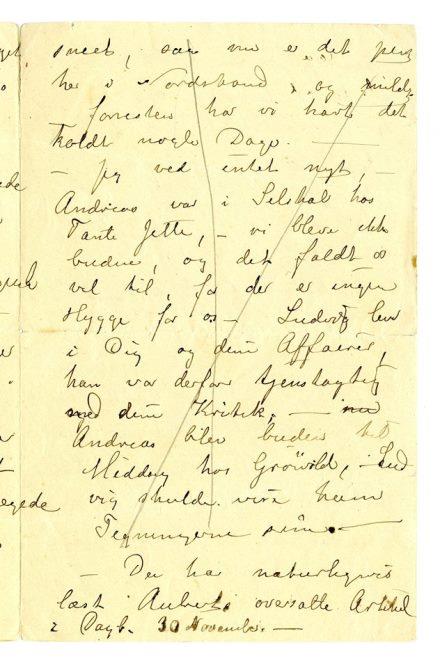 sneet, saa nu er det pent
her i Nordstrand, og mildt,
forresten har vi havt det
koldt nogle Dage. —
— Jeg ved intet nyt, —
Andreas var i Selskab hos
Tante Jette, — vi bleve ikke
budne, og det faldt os
vel til, for der er ingen
Hygge for os — Ludvig lever
i Dig og dine Affairer,
han var derfor gjenstagtig
med dine Kritik. — nu
Andreas blev buden til
Middag hos Grönvold, — Lud
vig skulde vise ham
Tegningerne sine. —
— Du har naturligvis
læst Auberts oversatte Artikel
i Dagb. 30 November. —